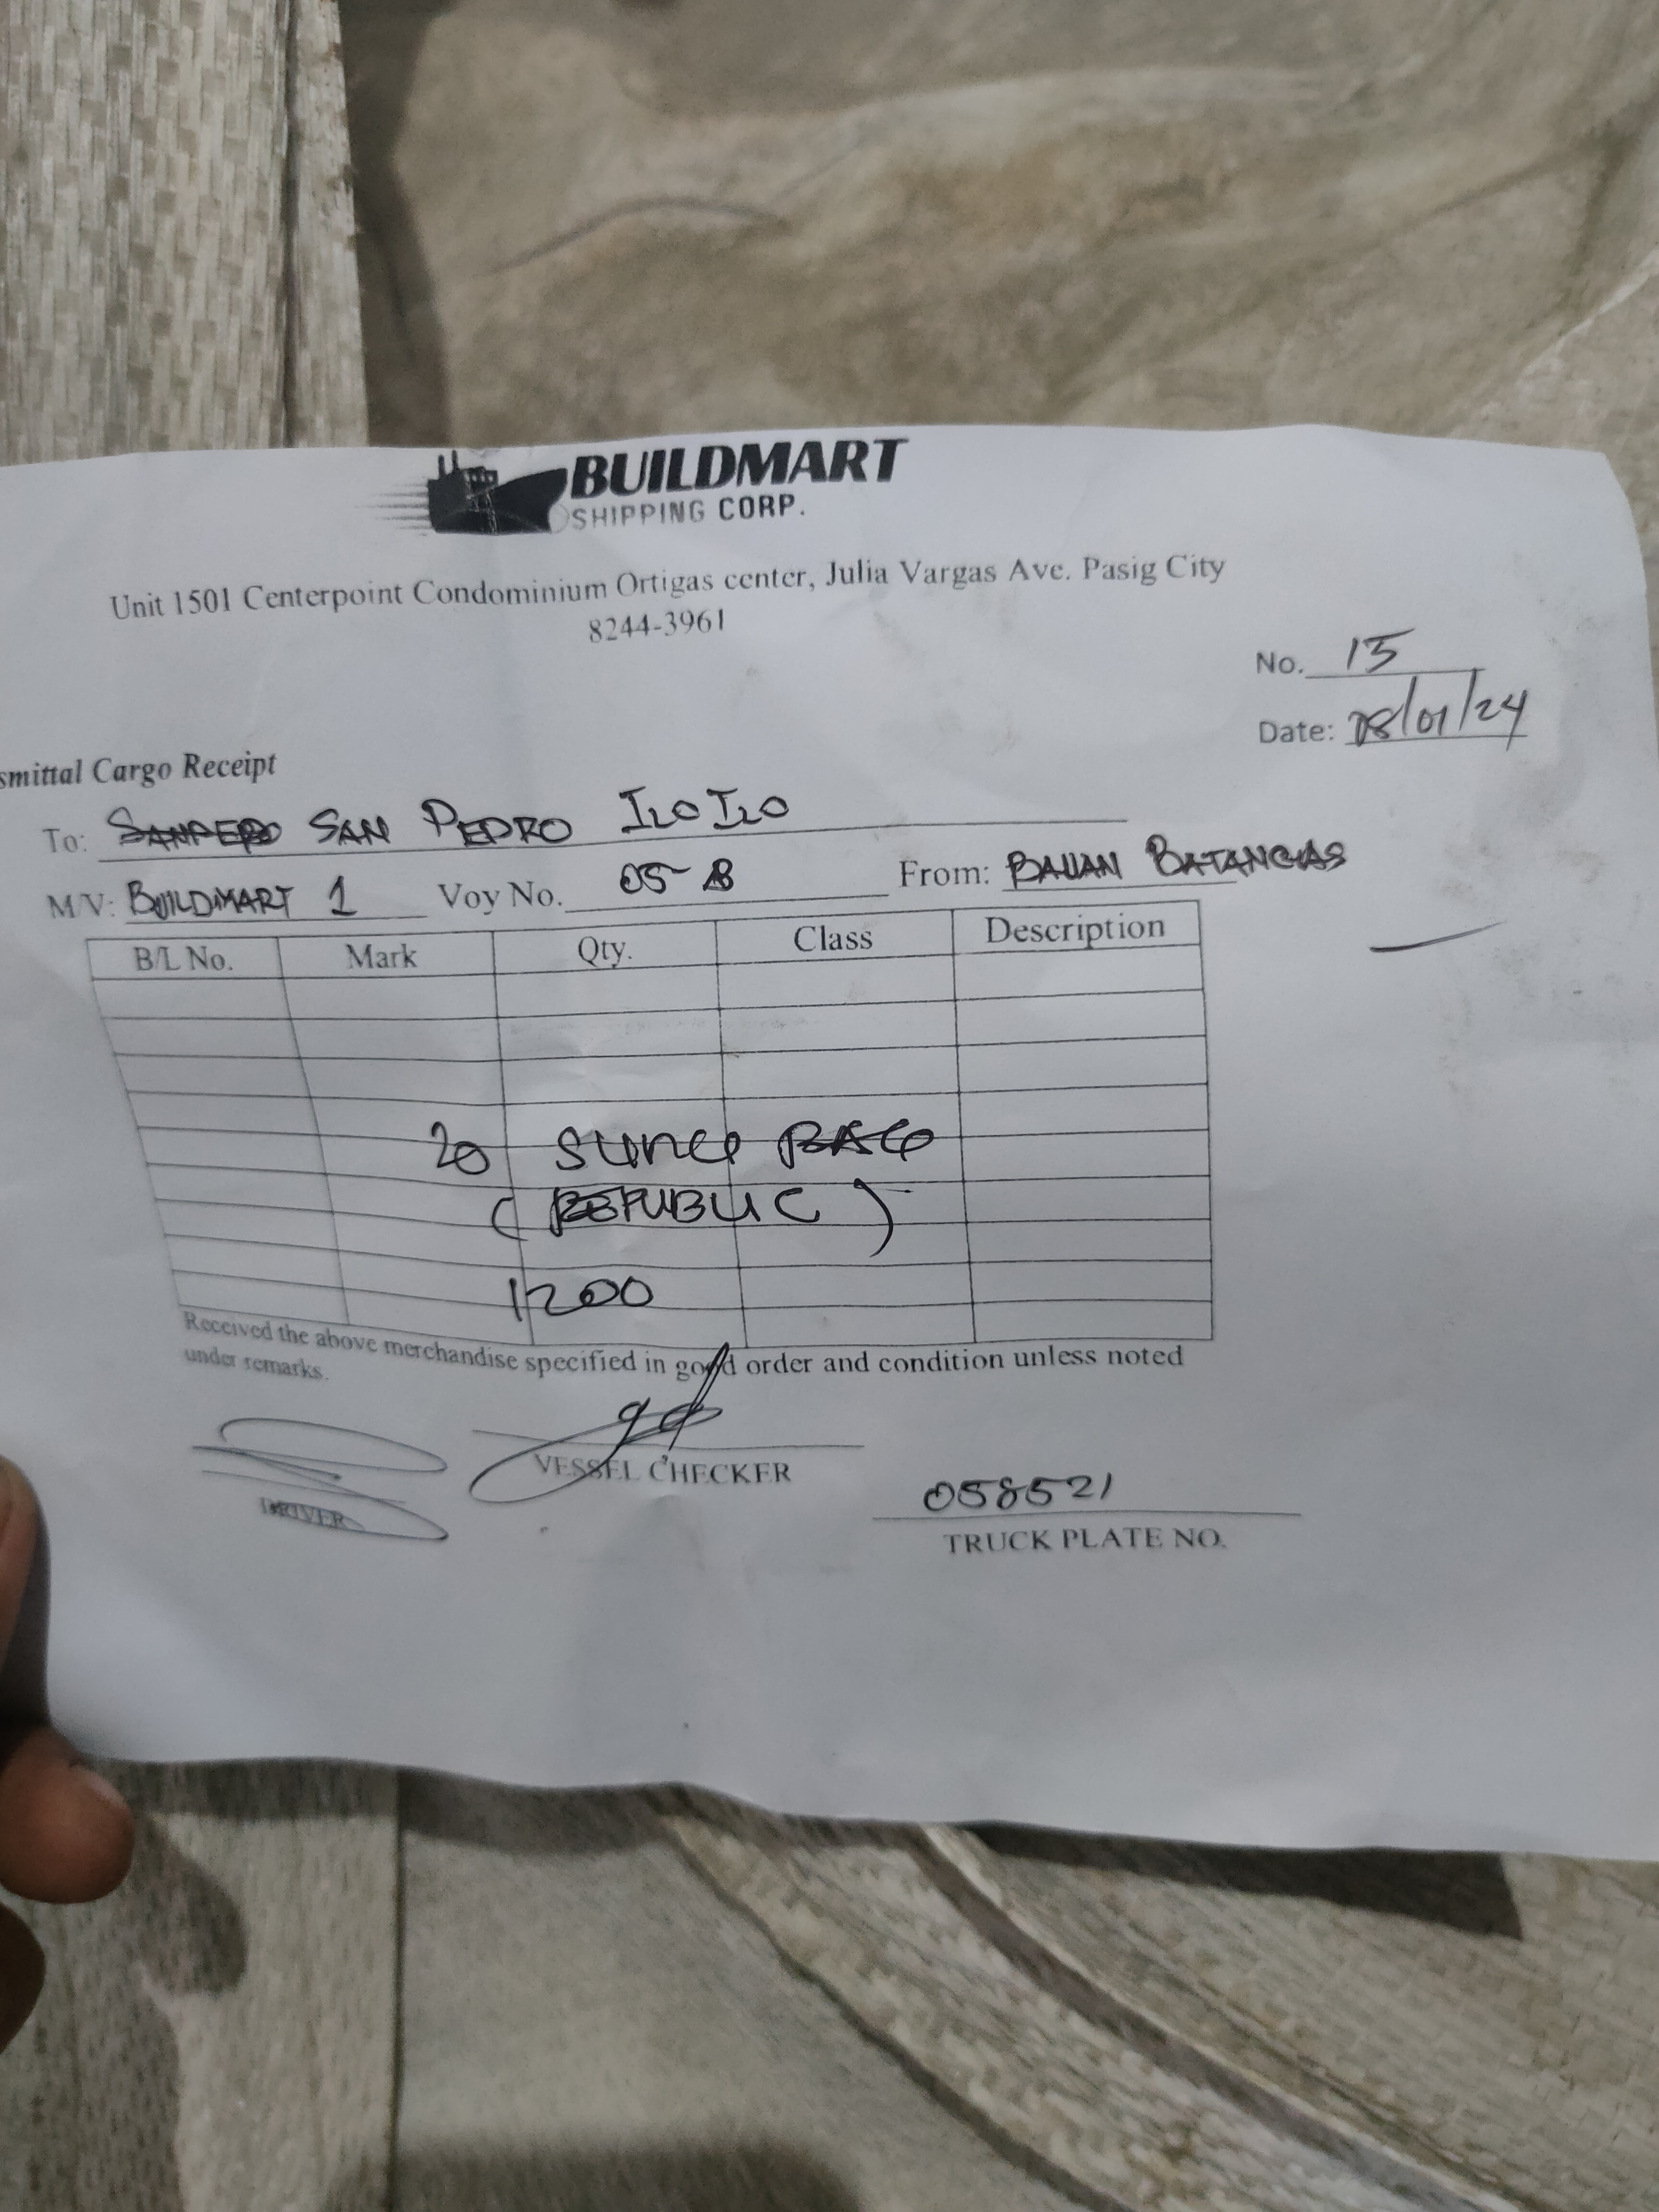 BUILDMART
SHIPPING CORP.
Unit 1501 Centerpoint Condominium Ortigas center, Julia Vargas Ave. Pasig City
8244-3961
No. 15
Date: 08/01/24
smittal Cargo Receipt
To: SAN PEDRO ILOILO
M/V: BUILDMART 1 Voy No. 05-B From: BAUAN BATANGAS
B/L No. Mark Qty. Class Description
20 BAG
(REPUBLIC)
1200
Received the above merchandise specified in good order and condition unless noted
under remarks.
DRIVER
VESSEL CHECKER
058521
TRUCK PLATE NO.